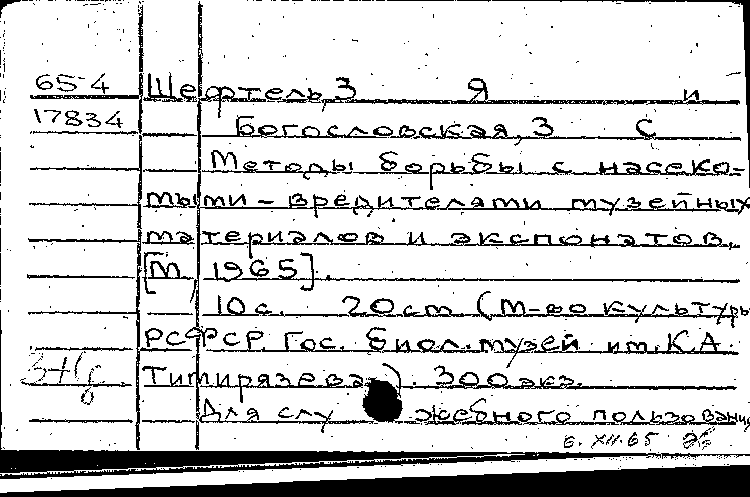 65-4 Шефтель, З Я и
17834 Богословская, З С
Методы борьбы с насеко-
мыми – вредителями музейных
материалов и экспонатов.
[М, 1965].
10 с. 20 см (М-во культуры
РСФСР. Гос. биол. музей им. К.А.
Тимирязева). 300 экз.
Для служебного пользования
6.XII.65